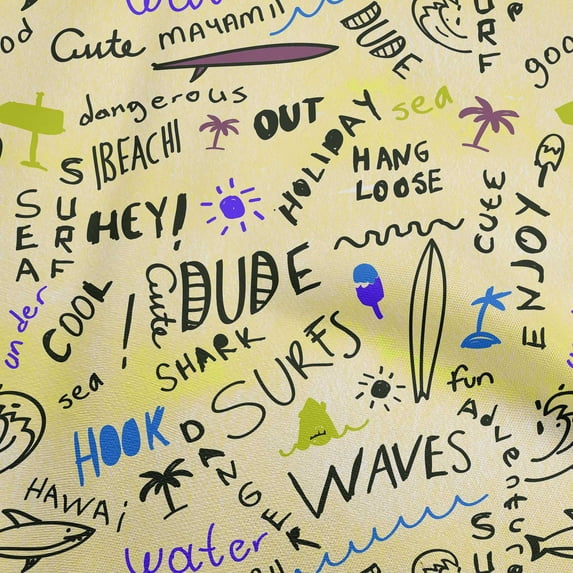 water
Cute MAYAMI
DUDE
SURF
good
od
dangerous
OUT
HOLIDAY
sea
BEACH
SURF
SEA
HEY!
HANG
LOOSE
CUTE
ENJOY
under
COOL
!
Cute
DUDE
SHARK
SURFS
sea
fun
Adventure
HOOK
DANGER
WAVES
HAWAi
water
SU